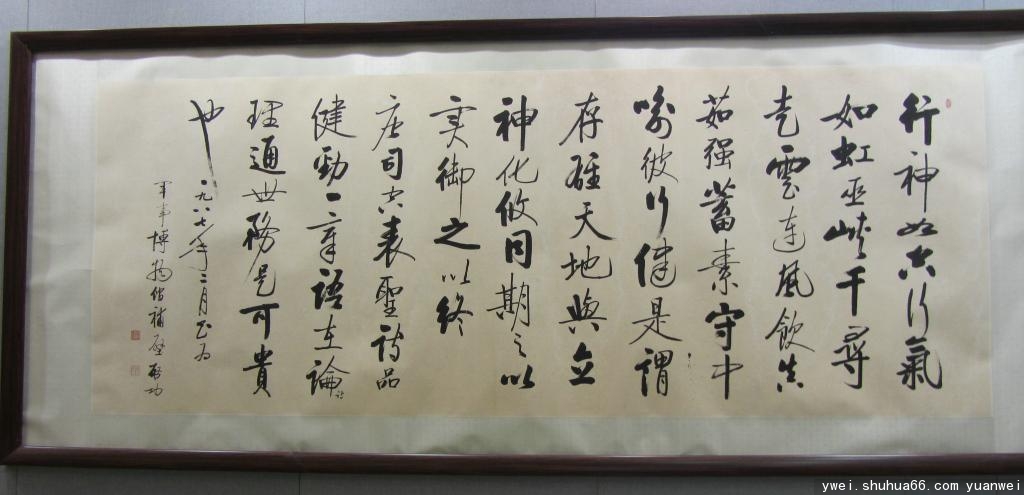 行神如空行氣
如虹巫峽千尋
走雲連風飲真
茹强蓄素守中
喻彼行健是謂
存雄天地與立
神化攸同期之以
実御之以終
唐司空表聖詩品
健勁一章語在論詩
理通世務是可貴
也 一九八七年二月书为
軍事博物馆補壁 启功
ywei.shuhua66.com yuanwei